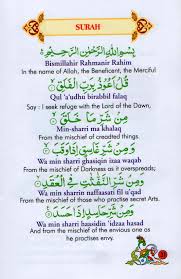 SURAH
بِسْمِ اللّٰهِ الرَّحْمٰنِ الرَّحِيْمِ
Bismillahir Rahmanir Rahim
In the name of Allah, the Beneficent, the Merciful
قُلْ اَعُوْذُ بِرَبِّ الْفَلَقِ
Qul 'a'udhu birabbil falaq
Say : I seek refuge with the Lord of the Dawn,
مِنْ شَرِّ مَا خَلَقَ
Min-sharri ma khalaq
From the mischief of created things,
وَ مِنْ شَرِّ غَاسِقٍ اِذَا وَقَبَ
Wa min sharri ghasiqin izaa waqab
From the mischief of Darkness as it overspreads;
وَ مِنْ شَرِّ النَّفّٰثٰتِ فِي الْعُقَدِ
Wa min sharrin naffaasati fil u'qad
From the mischief of those who practise secret Arts.
وَ مِنْ شَرِّ حَاسِدٍ اِذَا حَسَدَ
Wa min sharri haasidin 'idzaa hasad
And from the mischief of the envious one as
he practises envy.